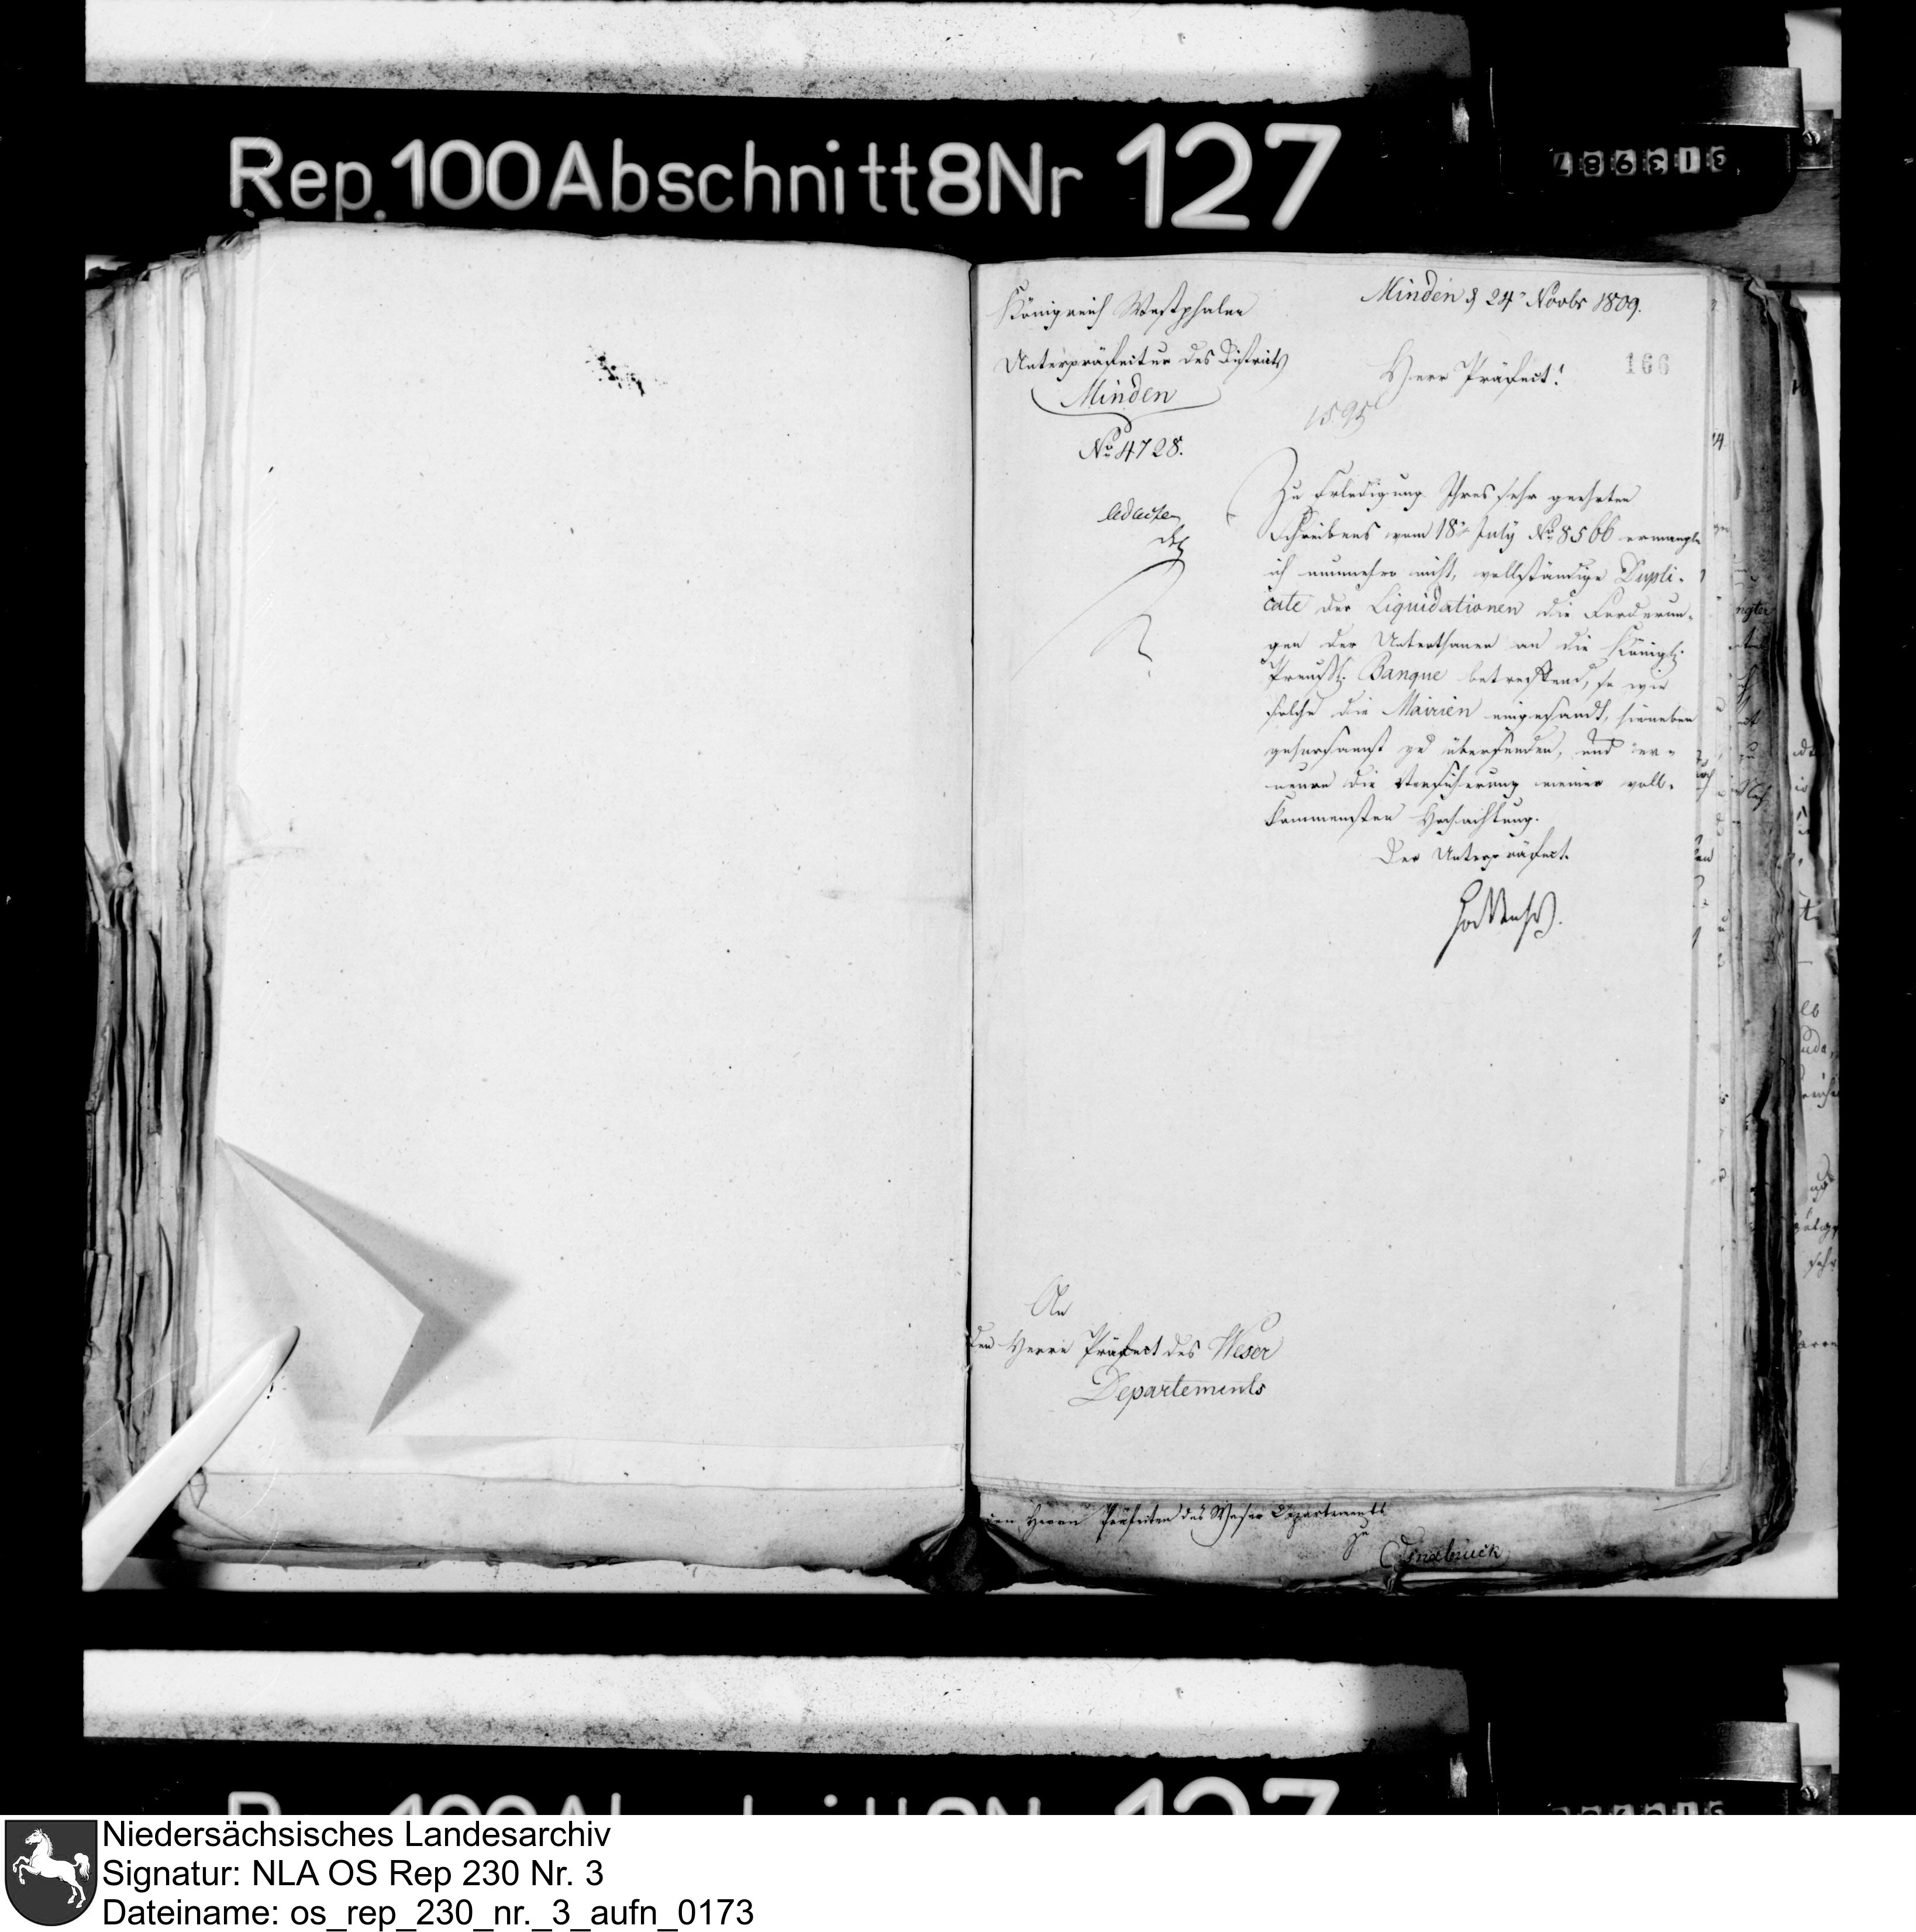 Rep. 100 Abschnitt 8 Nr 127
Königreich Westphalen
Unterpräfectur des Districts
Minden
No 4728.
Minden d 24n Novbr 1809.
Herr Präfect!
166
1595
ad acta
Zu Erledigung Ihres sehr geehrten
Schreibens vom 18n July No 8566 ermangle
ich nunmehro nicht, vollständige Dupli-
cate der Liquidationen die Forderun-
gen der Unterthanen an die Königl.
Preußl. Banque betreffend, so wie
solche die Mairien eingesandt, hieneben
gehorsamst zu übersenden, und er-
neure die Versicherung meiner voll-
kommensten Hochachtung.
Der Unterpräfect.
An
den Herrn Präfect des Weser
Departements
den Herrn Präfecten des Weser Departements
zu
Osnabrück
Niedersächsisches Landesarchiv
Signatur: NLA OS Rep 230 Nr. 3
Dateiname: os_rep_230_nr._3_aufn_0173